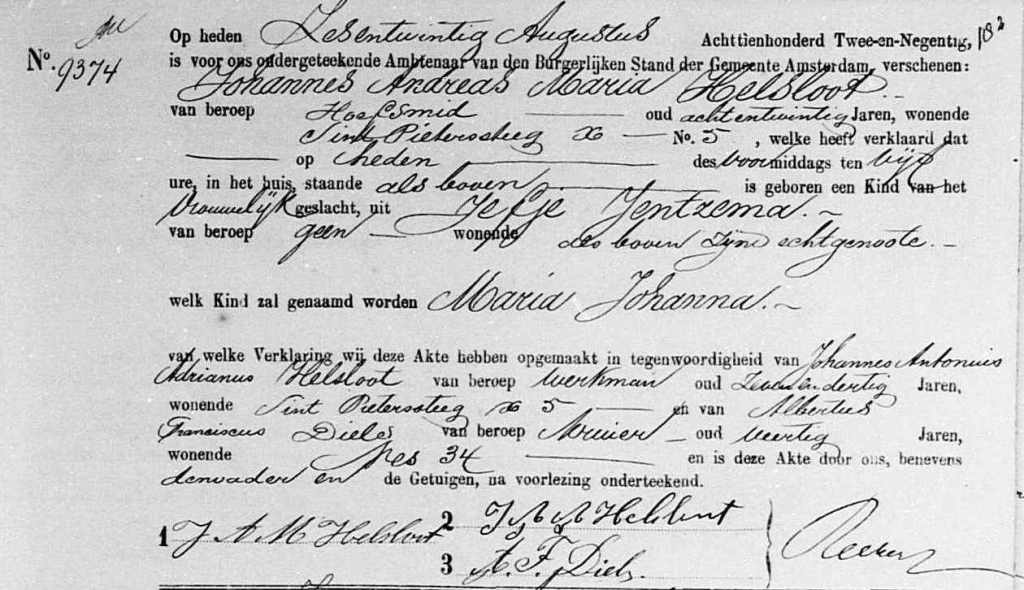 Op heden Zesentwintig Augustus Achttienhonderd Twee-en-Negentig,
No. 9374 is voor ons ondergeteekende Ambtenaar van den Burgerlijken Stand der Gemeente Amsterdam, verschenen:
Johannes Andreas Maria Helsloot
van beroep Hoefsmid oud achtentwintig Jaren, wonende
Sint Pieterssteeg No. 5, welke heeft verklaard dat
op heden des voormiddags ten vijf
ure, in het huis, staande als boven is geboren een Kind van het
Vrouwelijk geslacht, uit Jefje Jentzema.
van beroep geen wonende als boven zijne echtgenoote.
welk Kind zal genaamd worden Maria Johanna.
van welke Verklaring wij deze Akte hebben opgemaakt in tegenwoordigheid van Johannes Antonius
Adrianus Helsloot van beroep Werkman oud Zevenendertig Jaren,
wonende Sint Pieterssteeg 5 en van Albertus
Franciscus Diels van beroep oud veertig Jaren,
wonende Nes 34 en is deze Akte door ons, benevens
den vader en de Getuigen, na voorlezing onderteekend.
1 J A M Helsloot 2 J A A Helsloot
3 A. F. Diels.